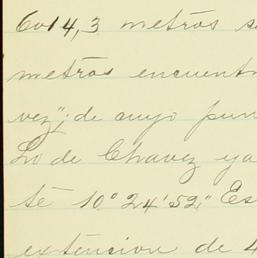 6014,3 metros s
metros encuentr
vez"; de cuyo pun
Lo de Chavez ya
te 10° 24' 52." Es
extencion de 4